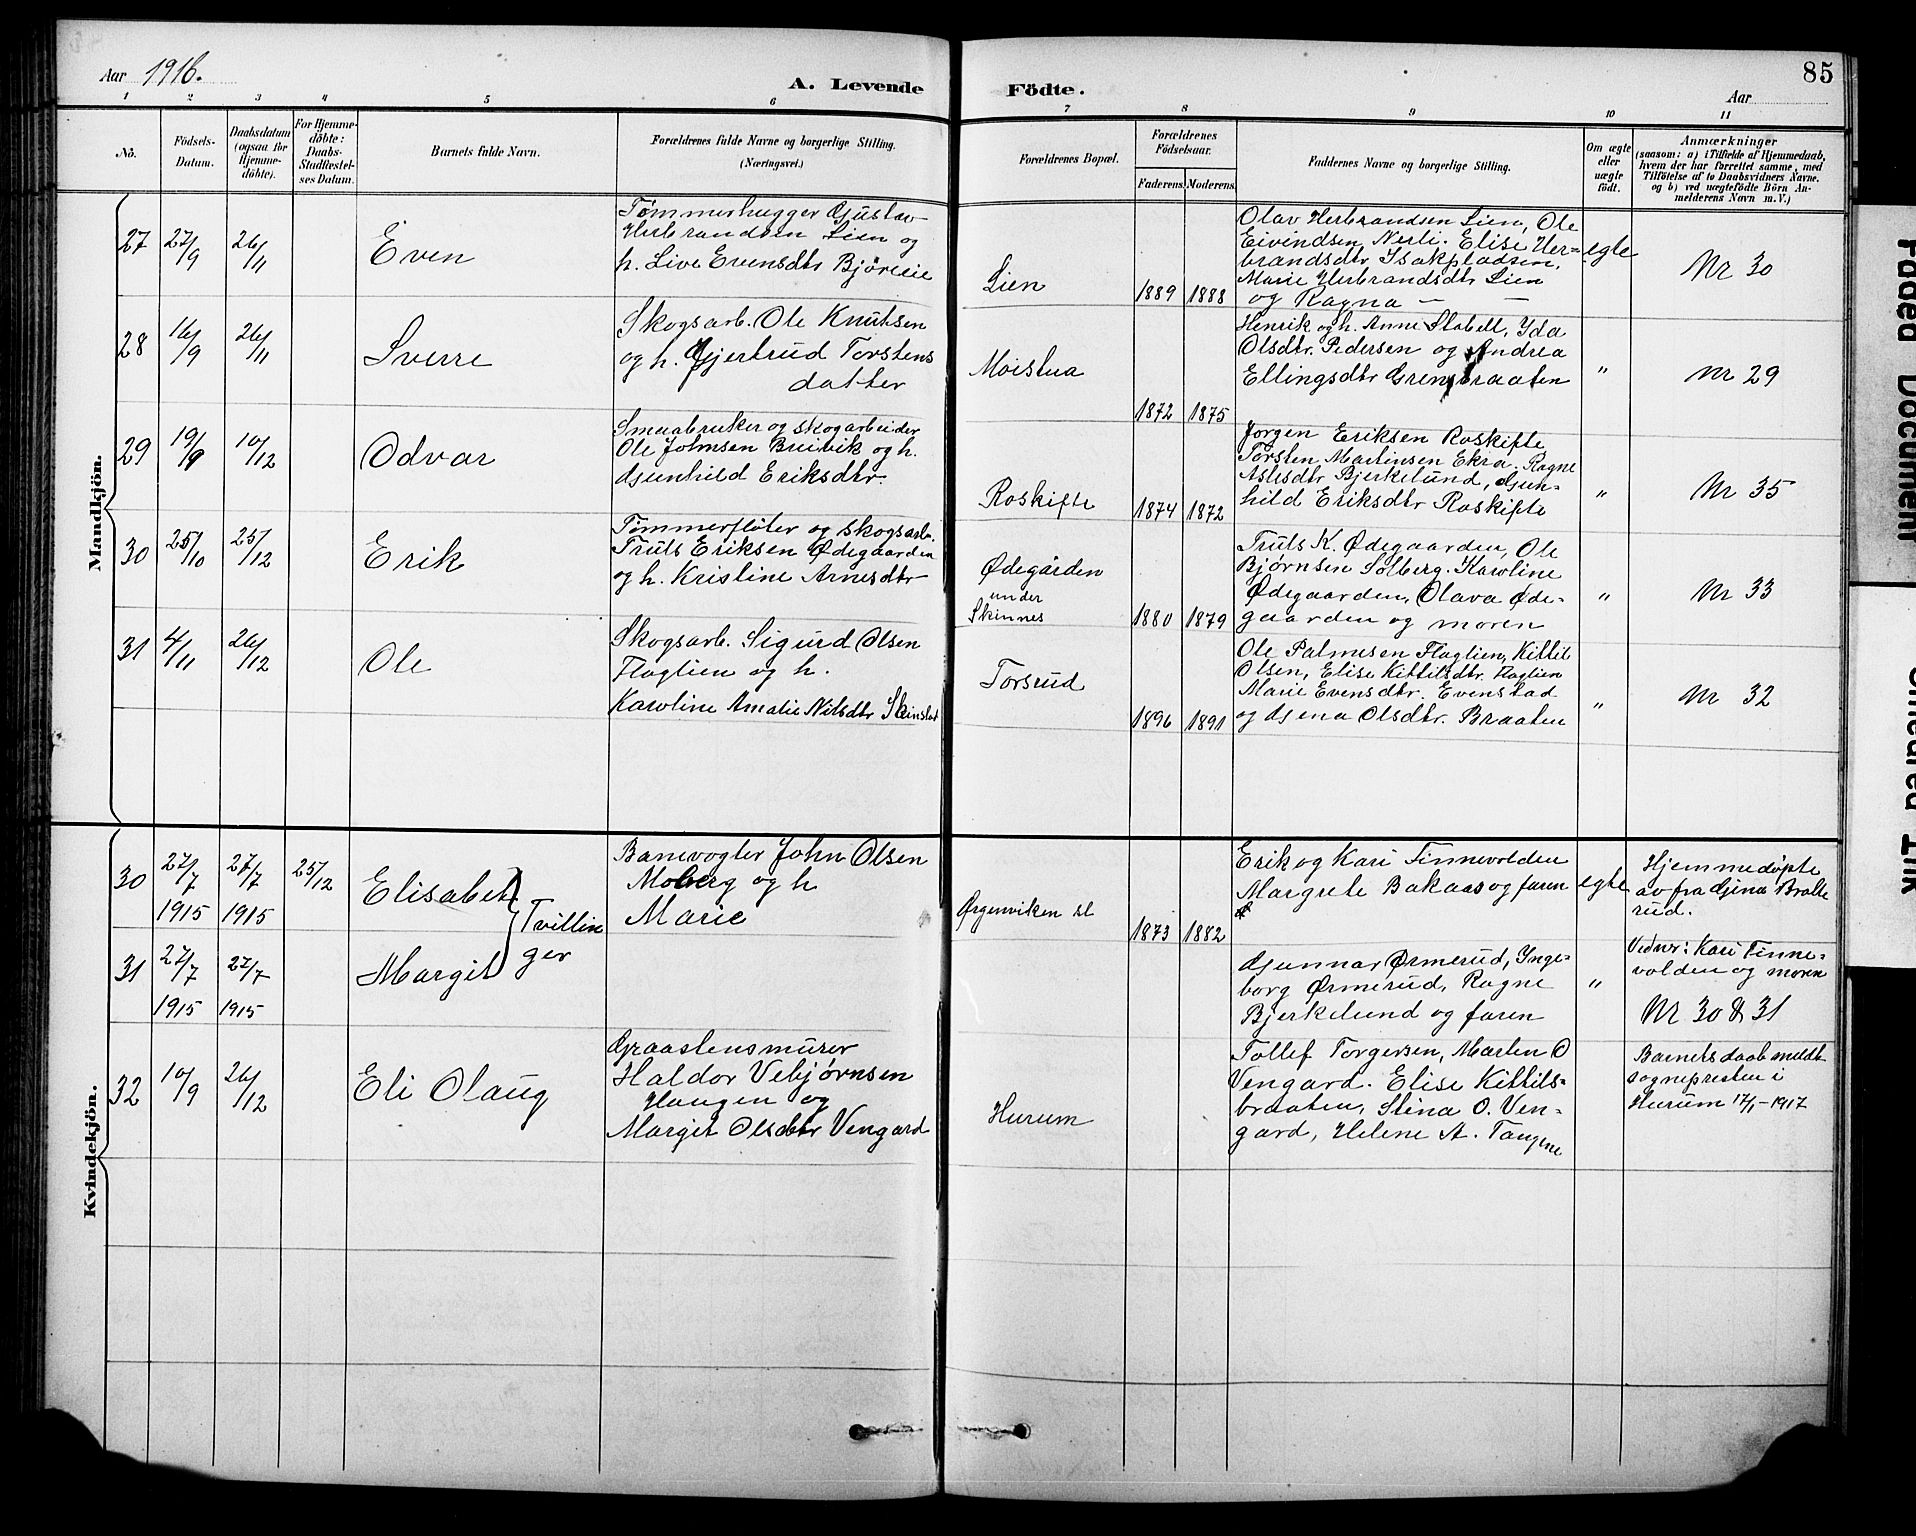 Aar 1916.
A. Levende
Födte.
85
Aar
1 2 3 4 5 6 7 8 9 10 11
No.
Födsels-
Datum.
Daabsdatum
(ogsaa for
Hjemme-
döbte).
For Hjemme-
döbte:
Daabs-
Stadfæstel-
ses Datum.
Barnets fulde Navn.
Forældrenes fulde Navne og borgerlige Stilling.
(Næringsvei.)
Forældrenes Bopæl.
Forældrenes
Födselsaar.
Faderens. Moderens.
Faddernes Navne og borgerlige Stilling.
Om ægte
eller
uægte
født.
Anmærkninger
(saasom: a) i Tilfælde af Hjemmedaab,
hvem der har forrettet samme, med
Tilföielse af to Daabsvidners Navne.
og b) ved uægtefödte Börn An-
melderens Navn m.V.)
Mandkjön.
27 27/9 26/11
Even
Tømmerhugger Gustav
Herbrandsen Lien og
h. Live Evensdtr Bjøreeie
Lien
1889 1888
Olav Herbrandsen Lien, Ole
Eivindsen Nerli. Elise Her-
brandsdtr Isakpladsen,
Marie Herbrandsdtr Lien
og Ragna — —
egte
Nr 30
28 16/9 26/11
Sverre
Skogsarb. Ole Knutsen
og h. Gjertrud Torstens
datter
Moistua
1872 1875
Henrik og h. Anne Stabell, Yda
Olsdtr. Pedersen og Andrea
Ellingsdtr Grensbraaten
"
Nr 29
29 19/9 10/12
Odvar
Smaabruker og skogarbeider
Ole Johnsen Breivik og h.
Gunhild Eriksdtr.
Roskifte
1874 1872
Jørgen Eriksen Roskifte
Torsten Martinsen Ekra. Ragne
Aslesdtr Bjerkelund, Gun-
hild Eriksdtr Roskifte
"
Nr 35
30 25/10 25/12
Erik
Tømmerfløter og skogsarb.
Truls Eriksen Ødegaarden
og h. Kristine Arnesdtr
Ødegården
under
Skinnes
1880 1879
Truls K. Ødegaarden, Ole
Bjørnsen Solberg. Karoline
Ødegaarden, Olava Øde-
gaarden og moren
"
Nr 33
31 4/11 26/12
Ole
Skogsarb. Sigurd Olsen
Flaglien og h.
Karoline Amalie Nilsdtr
Torsrud
1896 1891
Ole Palmesen Flaglien, Kittil
Olsen, Elise Kittilsdtr. Flaglien
Marie Evensdtr. Evenstad
og Gjena Olsdtr. Braaten
"
Nr 32
Kvindekjön.
30 27/7 27/7 25/12
1915 1915
Elisabet
Tvillin
ger
Banevogter John Olsen
Moberg og h
Marie
Ørgenviken st
1873 1882
Erik og Kari Finnevolden
Margrete Bakaas og faren
egte
Hjemmedøpte
av fra Gina Bralle
rud.
31 27/7 27/7
1915 1915
Margit
Gunnar Ørmerud, Ynge-
borg Ørmerud, Ragne
Bjerkelund og faren
"
Vidner: Kari Finne-
volden og moren
Nr 30 & 31
32 10/9 26/12
Eli Olaug
Graastensmurer
Haldor Vebjørnsen
Haugen og
Margit Olsdtr Vengard
Hurum
Tollef Torgersen, Marten O
Vengard. Elise Kittils-
braaten, Stina O. Ven-
gard, Helene A. Tangene
Barnets daab meldt
sognepresten i
Hurum 17/1-1917
Faded Document
Smeared Ink